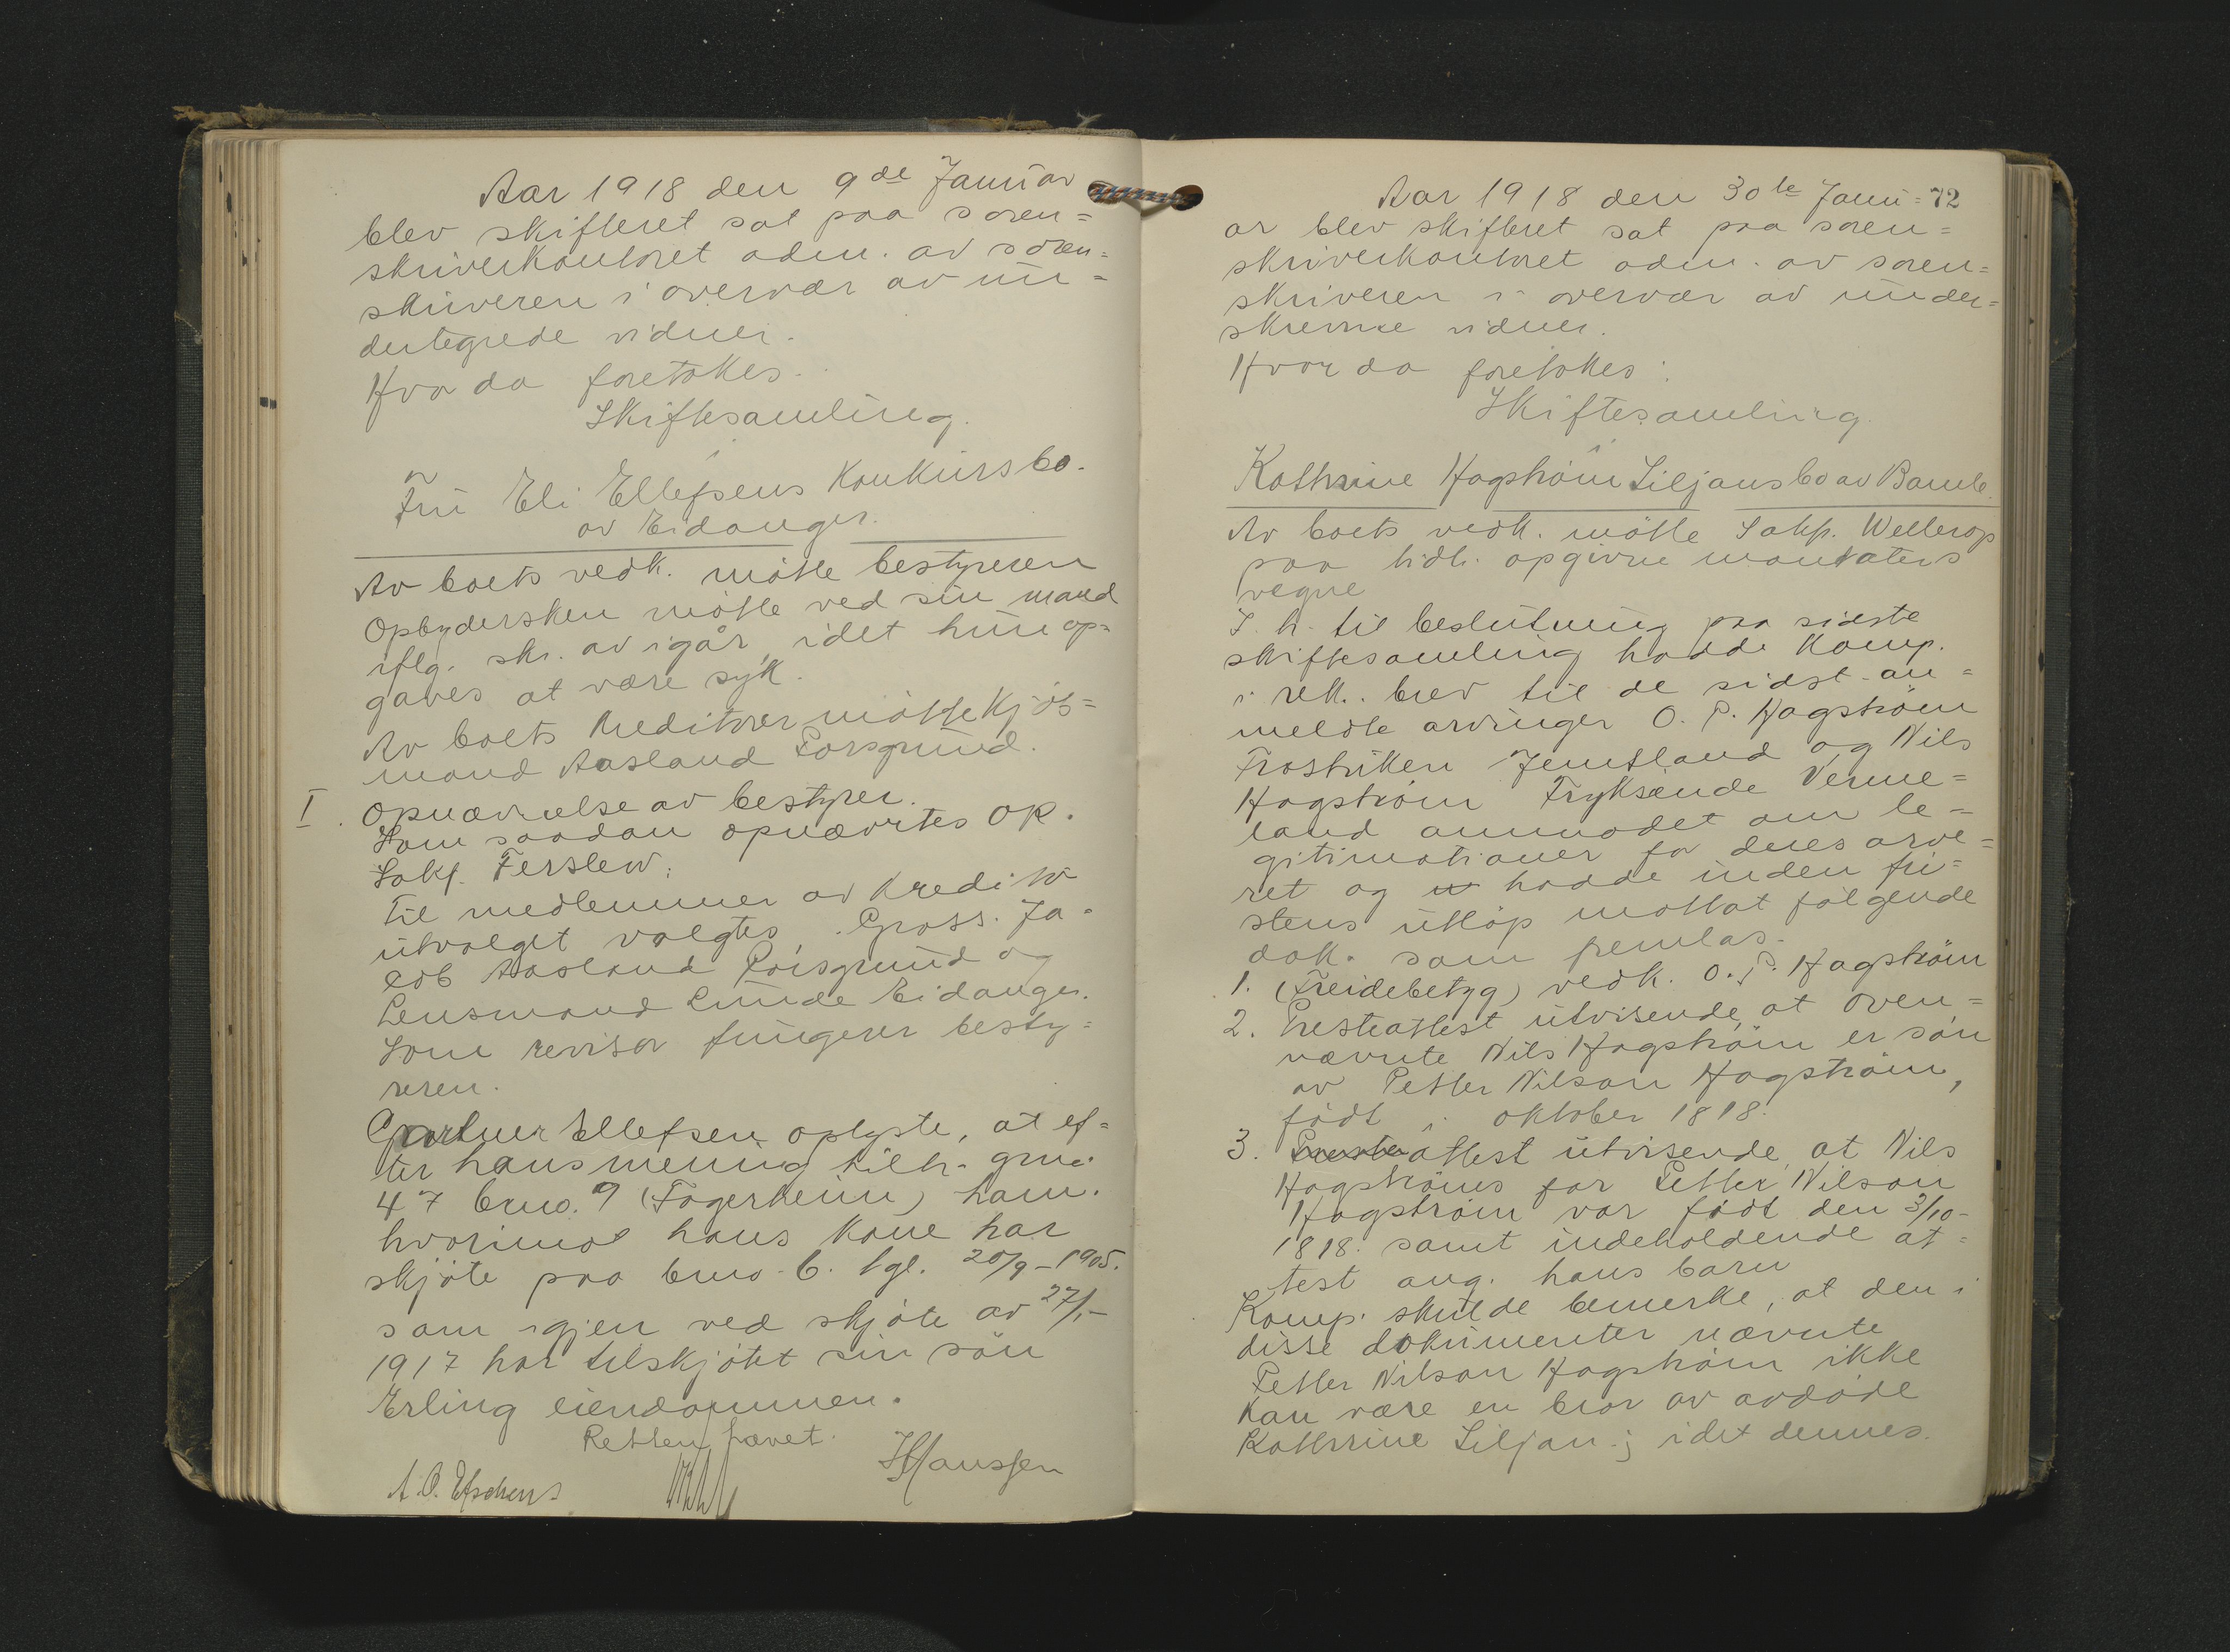 Aar 1918 den 9de Januar
blev skifteret sat paa soren=
skriverkontoret adm. av soren=
skriveren i overvær av un=
dertegnede vidner.
Hvor da foretokes.
Skiftesamling
i
Fru Eli Ellefsens Konkursbo.
av Eidanger.
Av boets vedk. møtte bestyreren
Opbydersken møtte ved sin mand
iflg. skr. av igår, idet hun op=
gaves at være syk.
Av boets kreditorer møtte Kjøb=
mand Aasland Porsgrund.
I. Opnævnelse av bestyrer.
Som saadan opnævntes OR.
Sakf. Ferslew.
Til medlemmer av kreditor
utvalget valgtes Gross. Ja=
cob Aasland Porsgrund og
Lensmand Lunde Eidanger.
Som revisor fungerer besty=
reren.
Gartner Ellefsen oplyste, at ef=
ter hans mening tilh. gno.
47 bno. 9 (Fagerheim) ham.
hvorimot hans kone har
skjøte paa bno. 6. tgl. 20/9-1905.
som igjen ved skjøte av 27/1-
1917 har tilskjøtet sin søn
Erling eiendommen.
Retten hævet.
HHanssen
72
Aar 1918 den 30te Janu=
ar blev skifteret sat paa soren=
skriverkontoret adm. av soren=
skriveren i overvær av under=
skrevne vidner.
Hvor da foretokes:
Skiftesamling
i
Kathrine Hagstrøm Liljans bo av Bamle.
Av boets vedk. møtte Sakf. Wellerop
paa tidl. opgivne mandaters
vegne
I h. til beslutning paa sidste
skiftesamling hadde Komp.
i rek. brev til de sidst an=
meldte arvinger O. P. Hagstrøm
Frostviken Jemtland og Nils
Hagstrøm Fryksände Verme=
land anmodet om le=
gitimationer for deres arve=
ret og hadde inden fri=
stens utløp mottat følgende
dok. som femlas.
1. (Freidebetyg) vedk. O. P. Hagstrøm
2. Presteattest utvisende, at oven=
nævnte Nils Hagstrøm er søn
av Petter Nilson Hagstrøm,
født i oktober 1818.
3. Presteattest utvisende, at Nils
Hagstrøms far Petter Nilson
Hagstrøm var født den 3/10-
1818. samt indeholdende at=
test ang. hans barn
Komp. skulde bemerke, at den i
disse dokumenter nævnte
Petter Nilson Hagstrøm ikke
kan være en bror av avdøde
Kathrine Liljan; idet dennes